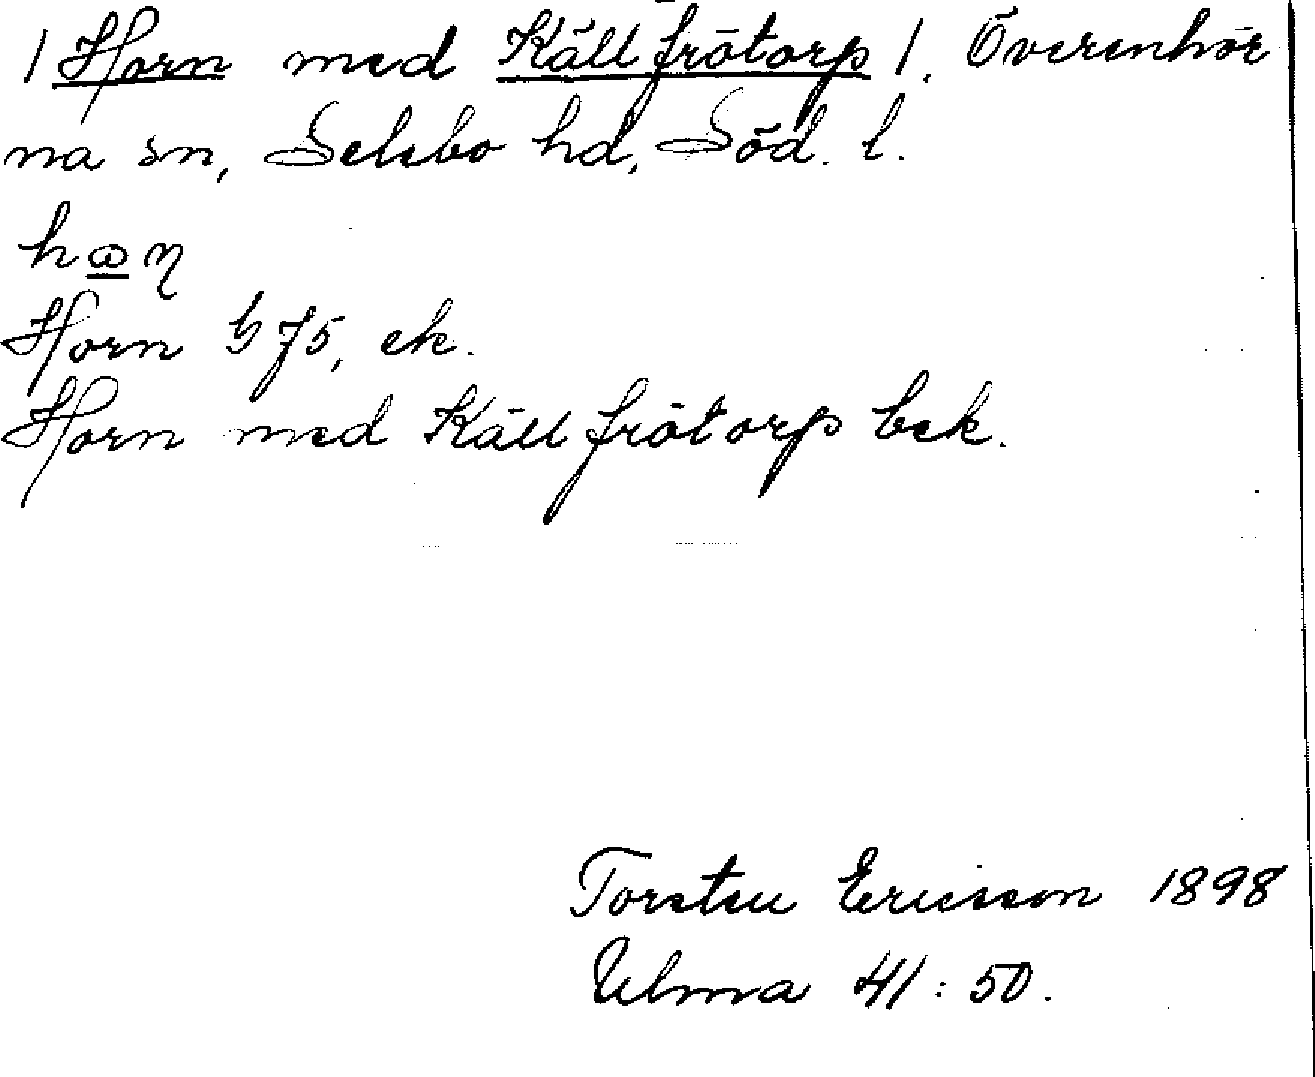 / Horn med Källfrötorp /. Överenhör
na sn, Selebo hd, Söd. l.
Horn 575, ek.
Horn med Källfrötorp bek.
Torsten Ericsson 1898
Ulma 41:50.